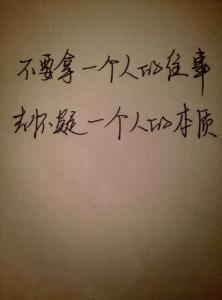 不要拿一个人的往事
去怀疑一个人的本质